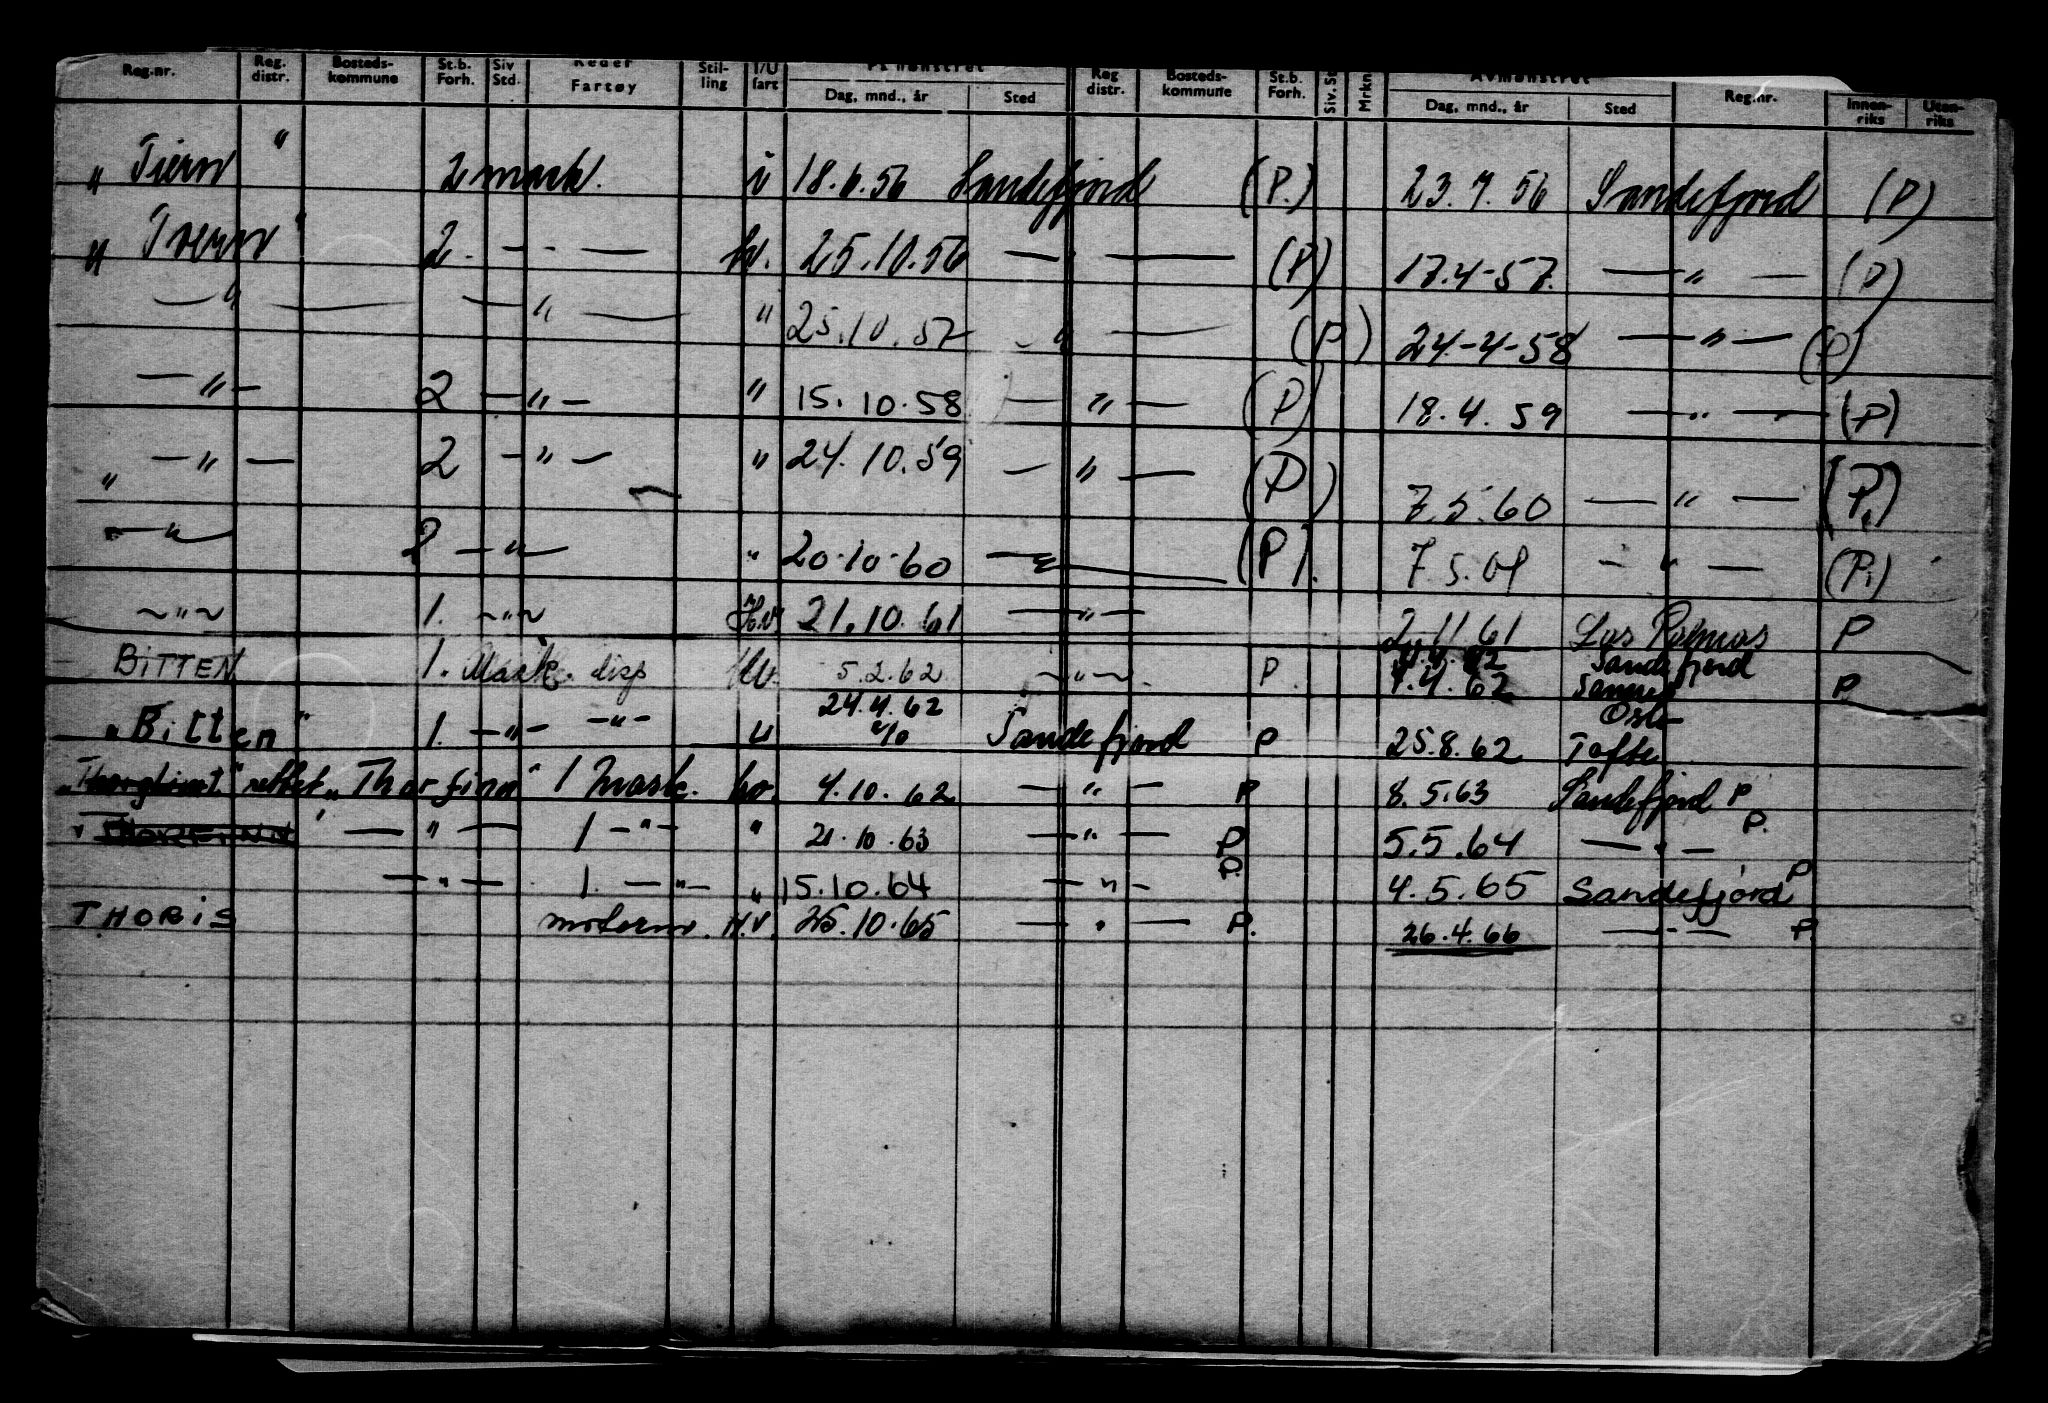 Reg.nr. Reg. distr. Bosteds-kommune St.b. Forh. Siv Std. Reder Fartøy Stil-ling I/U fart På mønstret Dag, mnd., år Sted Reg distr. Bosteds-kommune St.b. Forh. Siv. St Mrkn Avmønstret Dag, mnd., år Sted Reg.nr. Innen-riks Uten-riks
" 2 mask. i 18.6.56 Sandefjord (P.) 23.7.56 Sandefjord (P)
" 2. - - — hv. 25.10.56 — — (P) 17.4-57. — " — (P)
— " — — " — " 25.10.57 — " — (P) 24-4-58 — " — (P)
— " — 2 — " — " 15.10.58 — " — (P) 18.4.59 — " — (P)
" — " — 2 — " — " 24.10.59 — " — (P) 7.5.60 — " — (P.)
— " — 2 — " — " 20-10-60 — " — (P). 7.5.61 — " — (P.)
— " — 1. — " — H.v 21.10.61 — " — 2.11.61 Las Palmas P
BITTEN 1. Mask. disp Hv. 5.2.62 — " — P. Sandefjord
4.4.62 P
24.4.62
"Bitten" 1. — " — — " — " Sandefjord P Oslo
25.8.62 Tofte
rettet "Thorfinn" 1 mask. hv. 4.10.62 — " — P 8.5.63 Sandefjord P
" THORFINN — " — 1 — " — " 21.10.63 — " — P 5.5.64 — " — P.
— " — 1. — " — " 15.10.64 — " — P. 4.5.65 Sandefjord P
THORIS motorm. H.V. 25.10.65 — " — P. 26.4.66 — " — P.